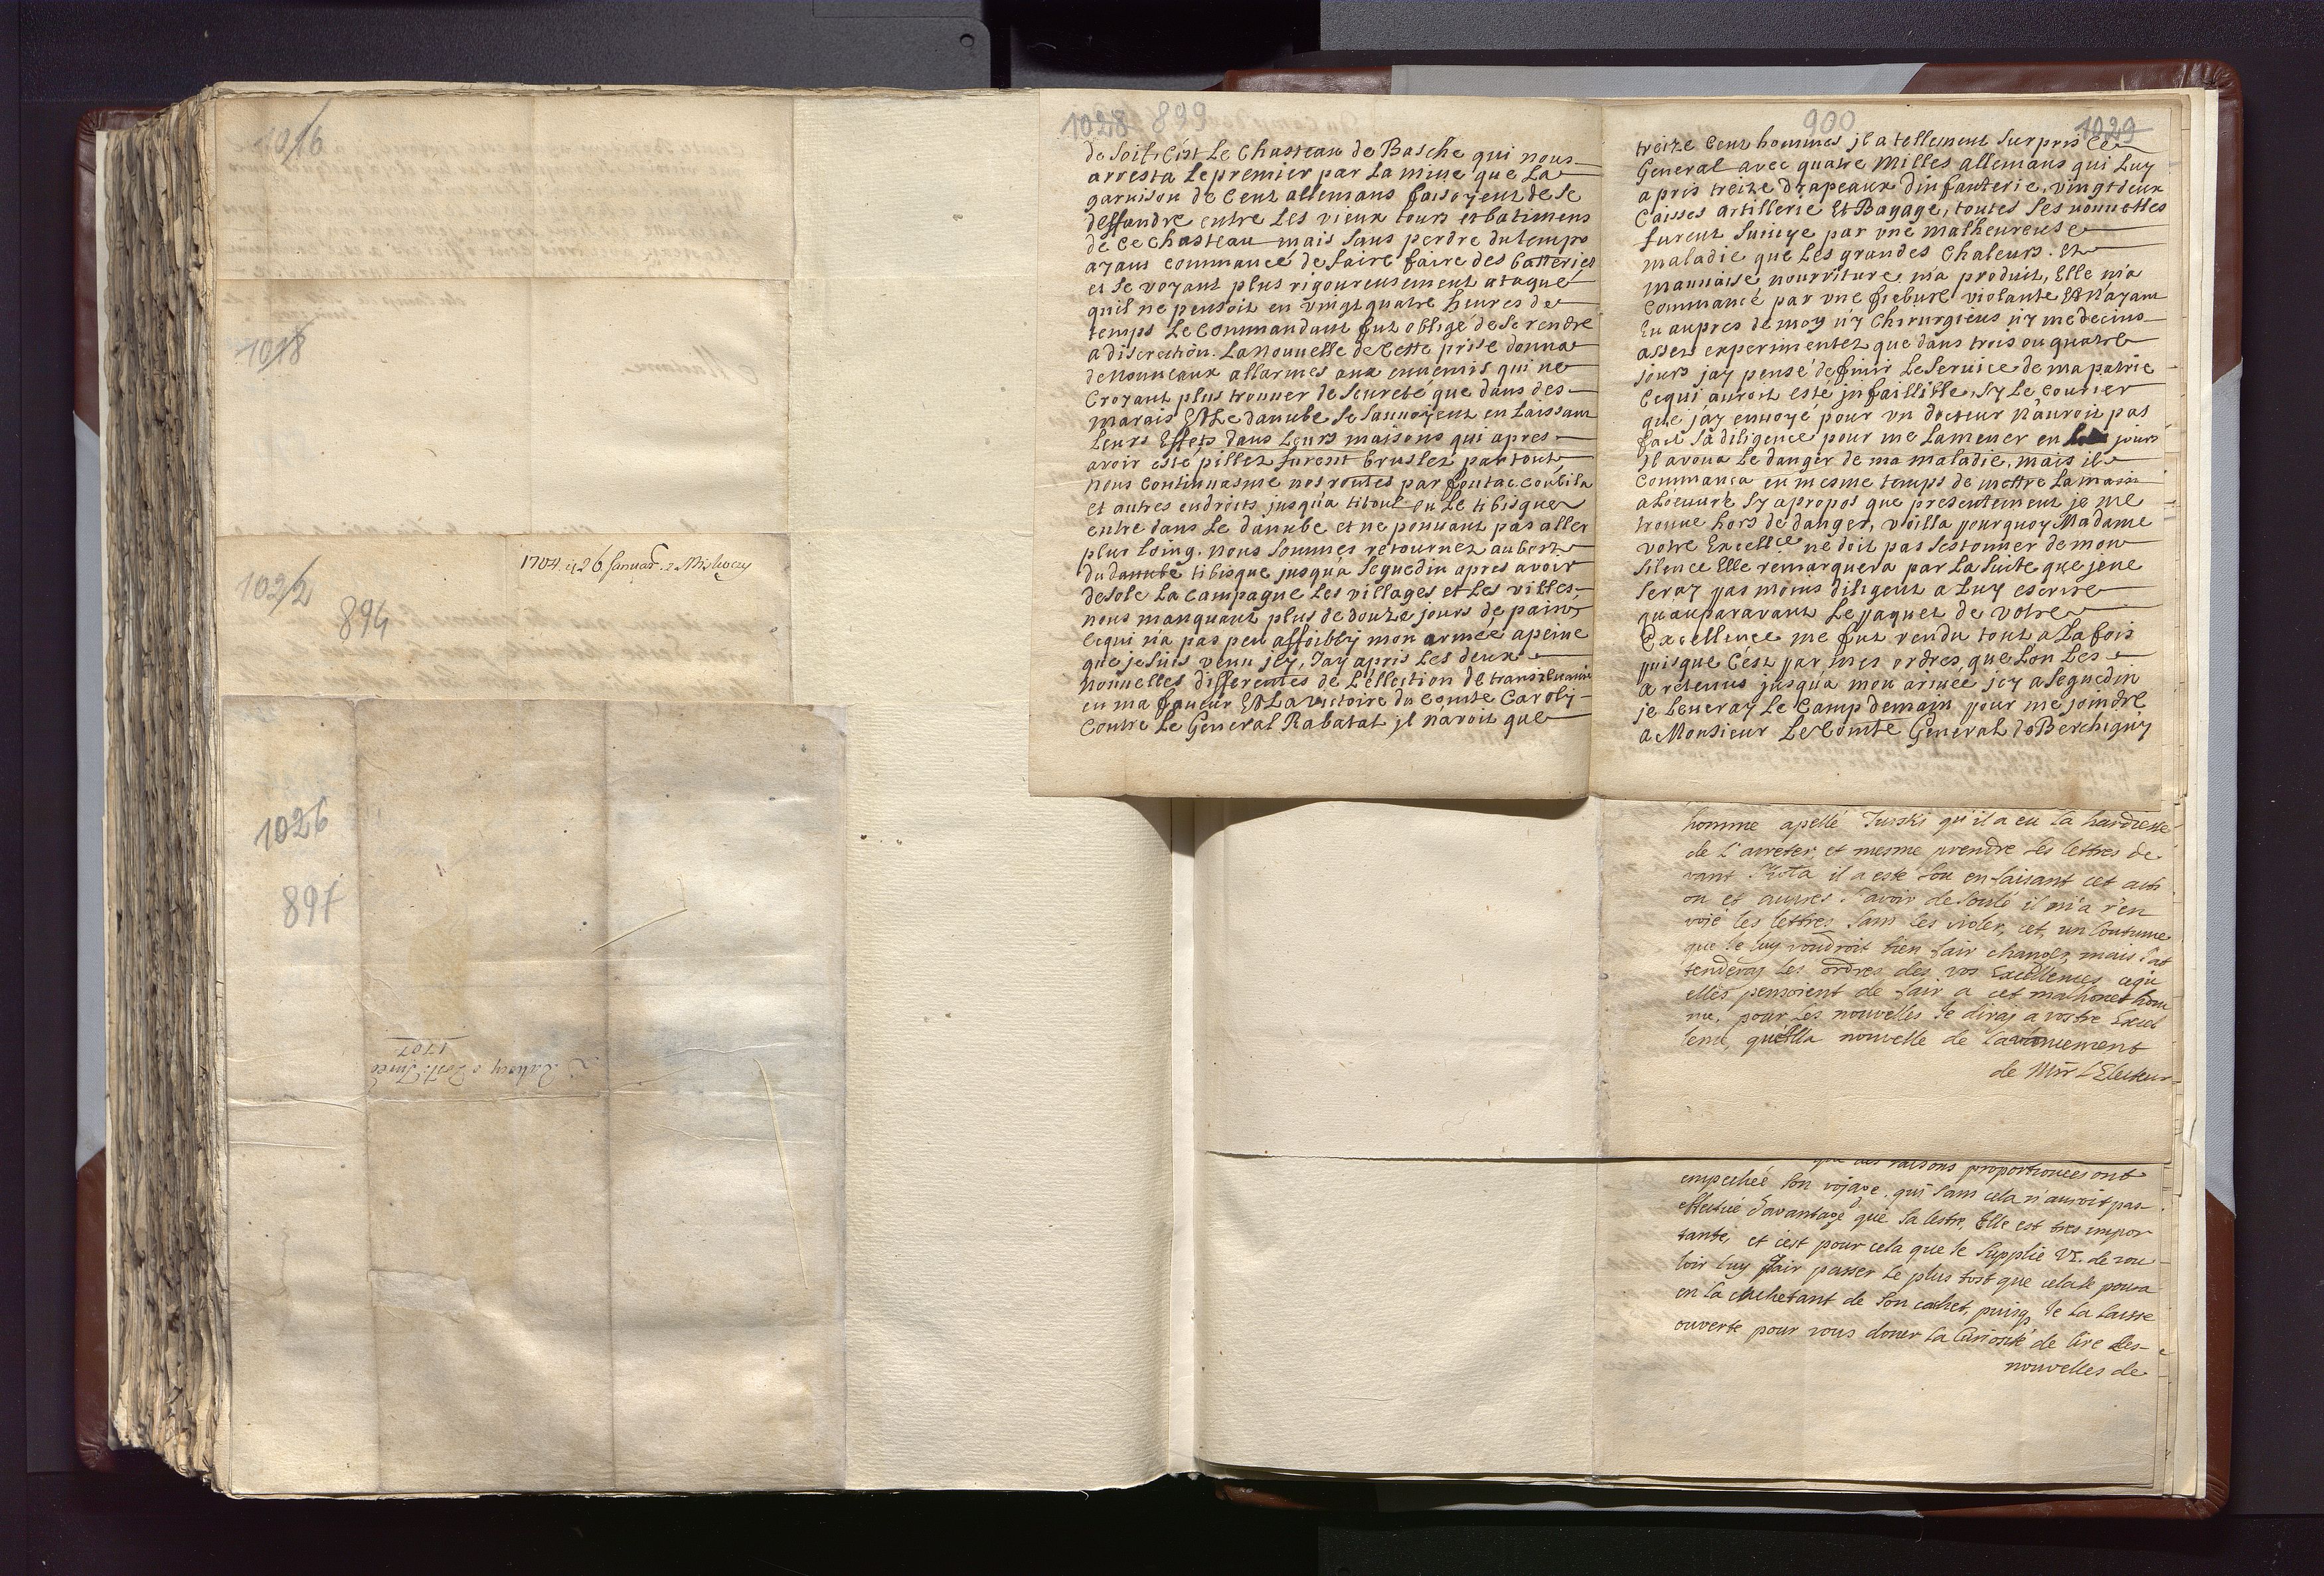 1016
1018
Madame
1704. 26 Januar.
1022
894
1026
897
1707
1028 899
de soif. C'ist Le Chasteau de Basche qui nous
arresta Le premier par La mine que La
garnison de Cent allemans faisoyent de se
deffandre entre Les vieux tours et batimens
de ce chasteau mais sans perdre du temps
ayans commancé de faire faire des batteries
et se voyant plus rigoureusement ataqué
qu'il ne pensoit en vingt quatre heures de
temps Le Commandant fut obligé de se rendre
a discretion. La Nouuelle de Cette prise donna
de Nouueaux allarmes aux ennemis qui ne
Croyant plus trouuer de Seureté que dans des
marais Et Le danube se sauuoyent en Laissant
Leurs Effets dans Leurs maisons qui apres
avoir esté pillez furent bruslez par tout,
Nous Continuasme nos routes par
et autres endroits jusqu'a titoul ou Le tibisque
entre dans Le danube et ne pouuant pas aller
plus Loing. Nous Sommes retournez au bort
du danube tibisque jusqu'a Seguedin apres avoir
desole La Campagne Les villages et Les villes,
nous manquant plus de douze jours de pain,
Ce qui n'a pas peu affoibly mon armée apeine
que je suis venu jcy, J'ay apris Les deux
Nouuelles differentes de L'ellection de transiluanie
en ma faueur Et La victoire du Comte Caroly
Contre Le General Rabatat jl n'avoit que
900 1029
treize Cent hommes jl a tellement Surpris Ce
General avec quatre Milles allemans qui Luy
a pris treize drapeaux d'infanterie, vingt deux
Caisses artillerie Et Bagage, toutes Ses nouuelles
furent Suiuye par vne malheureuse
maladie que Les grandes Chaleurs. Et
mauuaise nourriture m'a produit, Elle m'a
Commancé par vne fiebure violante Et N'ayant
Eu aupres de moy n'y Chirurgiens n'y medecins
assez experimentez que dans trois ou quatre
jours jay pensé de finir Le Seruice de ma patrie
Ce qui auroit esté jnfaillible, sy Le Courier
que j'ay enuoyé pour vn docteur N'auroit pas
fait Sa diligence pour me Lamener en jours
Jl avoua Le danger de ma maladie, mais il
Commança en mesme temps de mettre La main
a L'euure Sy apropos que presentement je me
trouue hors de danger, voilla pourquoy Madame
votre Excell<sup>ce</sup> ne doit pas Sestonner de mon
Silence Elle remarquera par La Suite que je ne
Seray pas moins diligent a Luy escrire
qu'auparavant Le paquet de Votre
Excellence me fut rendu tout a La fois
puisque C'est par mes ordres que Lon Les
a retenus jusqu'a mon ariuée jcy a Seguedin
je Leueray Le Camp demain pour me joindre
a Monsieur Le Comte General de Berchigny
homme apellé qu'il a eu la hardiesse
de l'arreter, et mesme prendre les lettres de
vant il a esté sou en faisant cet acti
on et aupres d'avoir desoulé il m'a r'en
voié les lettres sans les violer, cet un Coutume
que Je luy voudroit bien fair changer, mais J'at
tenderay les ordres des vos Excellences ce qu'
elles pensoient de fair a cet malhonet hom
me, pour les nouvelles Je diray a vostre Excel
lence, qu'ella nouvelle de l'avenement
de Mr̃ L'Electeur
raisons proportionees ont
empechée son vojage, qui sans cela n'auroit pas
effectué d'avantage que sa lestre, Elle est tres impor
tante, et c'est pour cela que Je Supplie VE. de vou
loir luy fair passer le plus tost que cela se poura
en la cachetant de son cachet, puisq Je la laisse
ouverte pour vous doner la Curiosité de lire des
nouvelles de